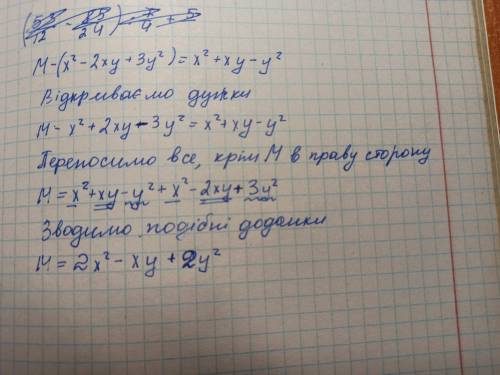 М-(x²-2xy+3y²)=x²+xy-y²
Відкриваємо дужки
М-x²+2xy-3y²=x²+xy-y²
Переносимо все, крім М в праву сторону
М=x²+xy-y²+x²-2xy+3y²
Зводимо подібні доданки
М=2x²-xy+2y²